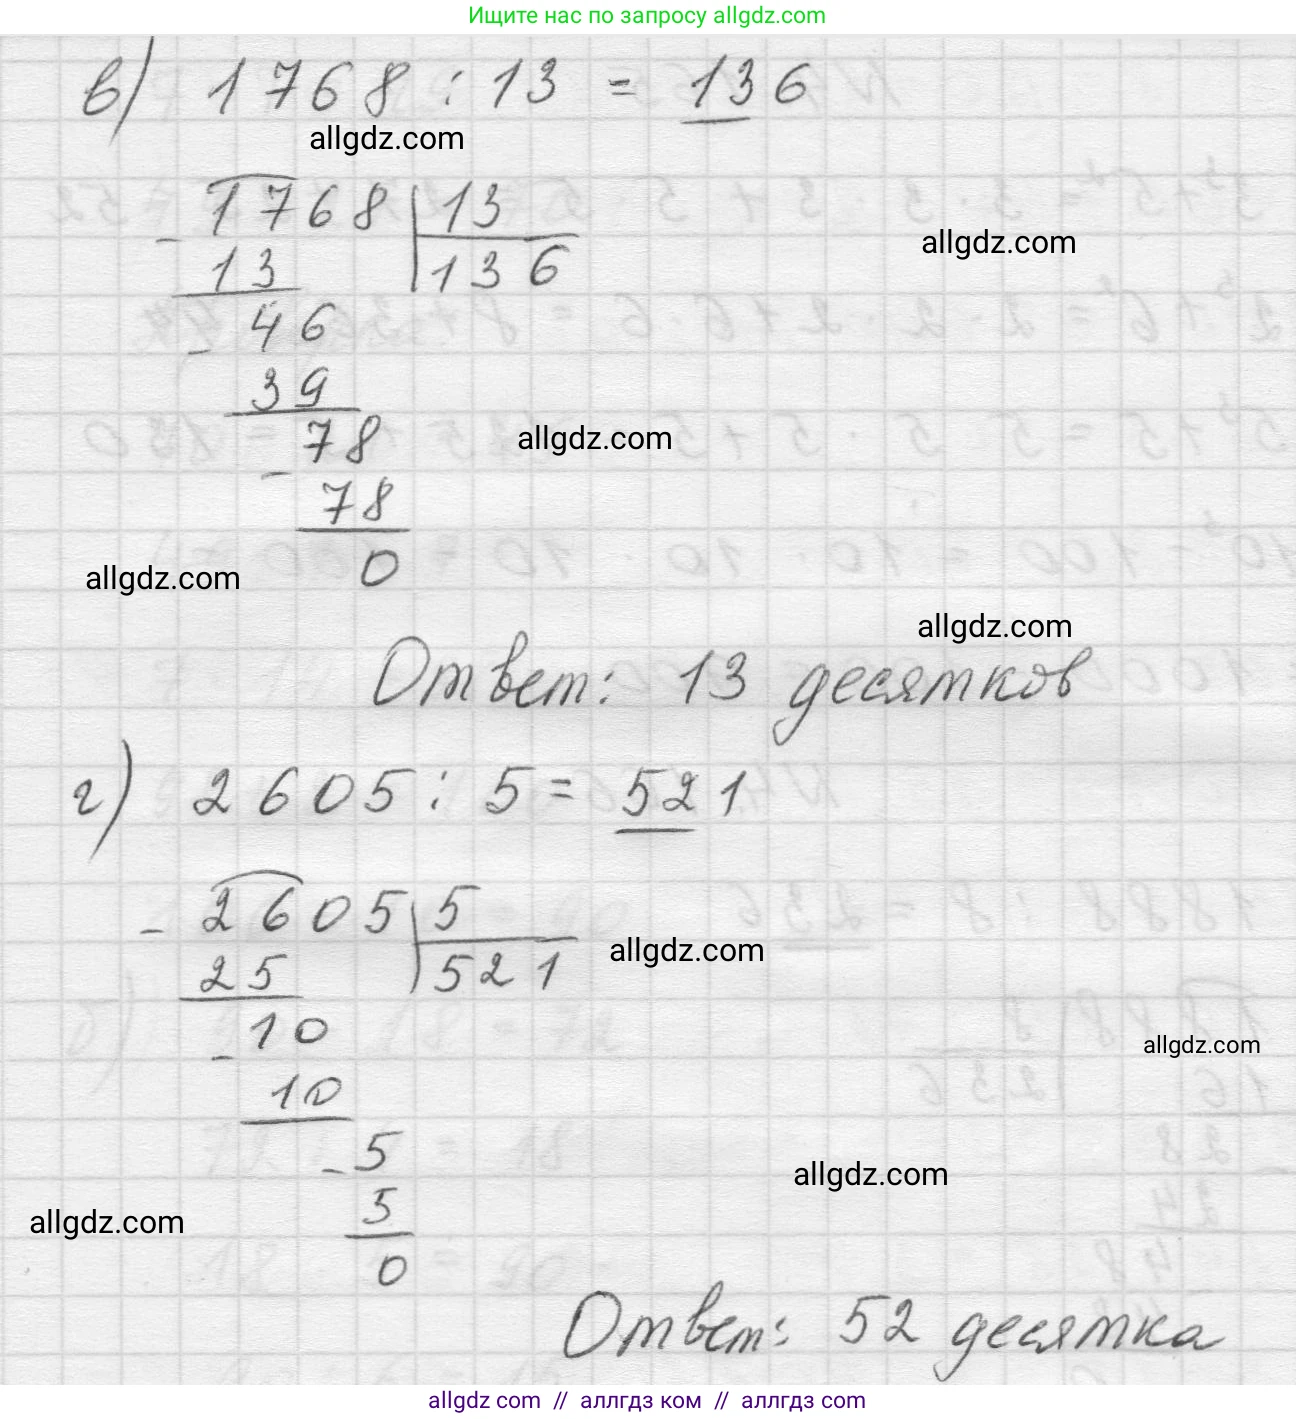 Ищите нас по запросу allgdz.com
в) 1768 : 13 = 136
allgdz.com
1768 | 13
- 13 | 136
allgdz.com
46
- 39
78
allgdz.com
- 78
0
allgdz.com
allgdz.com
Ответ: 13 десятков
г) 2605 : 5 = 521
- 2605 | 5
25 | 521
allgdz.com
- 10
allgdz.com
10
- 5
allgdz.com
5
allgdz.com
0
Ответ: 52 десятка
allgdz.com // аллгдз ком // аллгдз.com